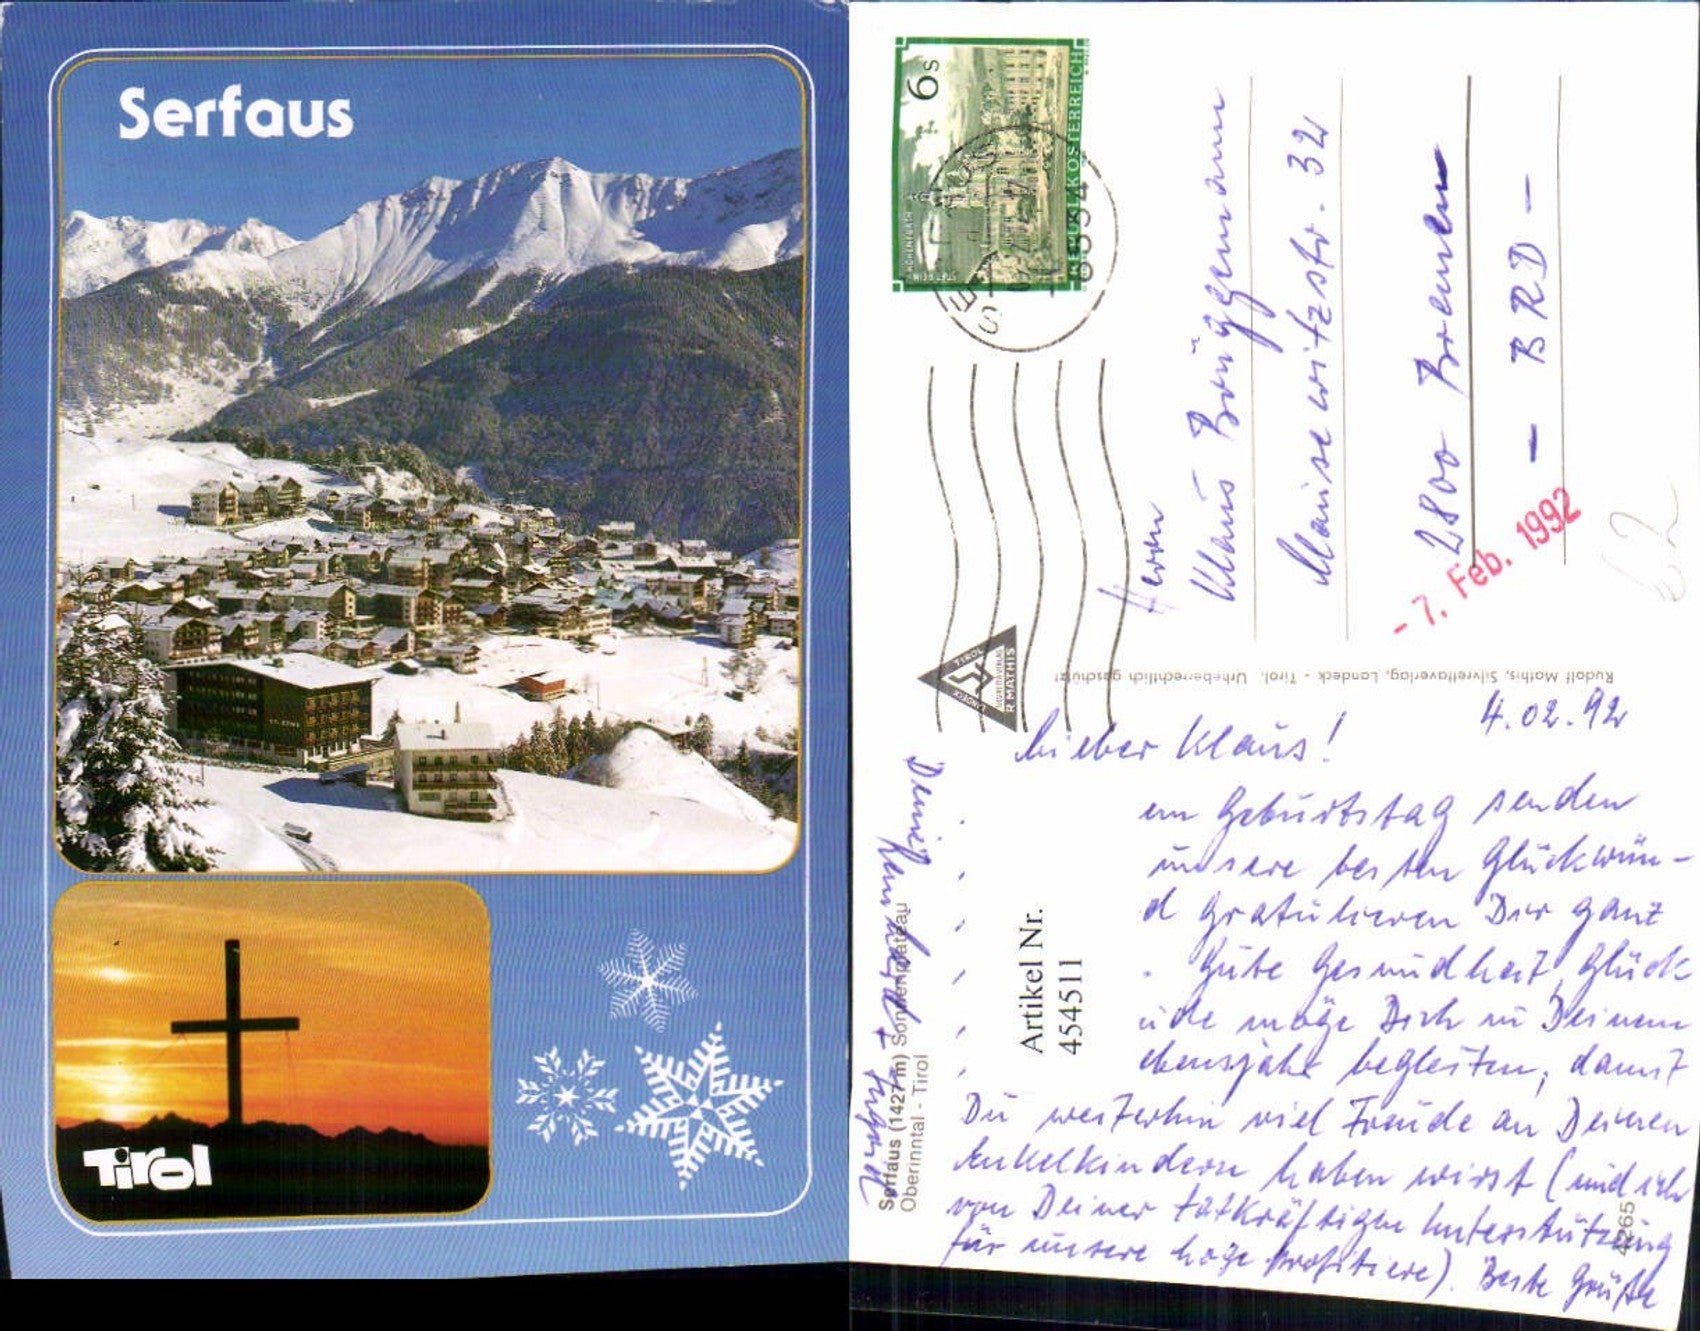 Serfaus
Tirol
6s
REPUBLIK ÖSTERREICH
STIFT REIN
HOHENFURTH
6534
Herrn
Klaus Brüggemann
Mauseritzstr. 32
2800 Bremen
- BRD -
- 7. Feb. 1992
62
Rudolf Mathis, Silvrettaverlag, Landeck - Tirol. Urheberrechtlich geschützt
TIROL
LANDECK
SILVRETTAVERLAG
R. MATHIS
4.02.92
Lieber Klaus!
em Geburtstag senden
unsere besten Glückwün-
d gratulieren Dir ganz
. Gute Gesundheit, Glück
ude möge Dich in Deinem
ebensjahr begleiten, damit
Du weiterhin viel Freude an Deinen
Enkelkindern haben wirst (und ich
von Deiner tatkräftigen Unterstützung
für unsere Loge profitiere). Beste Grüße
Artikel Nr.
454511
Serfaus (1427 m) Sonnenplateau
Oberinntal - Tirol
4265